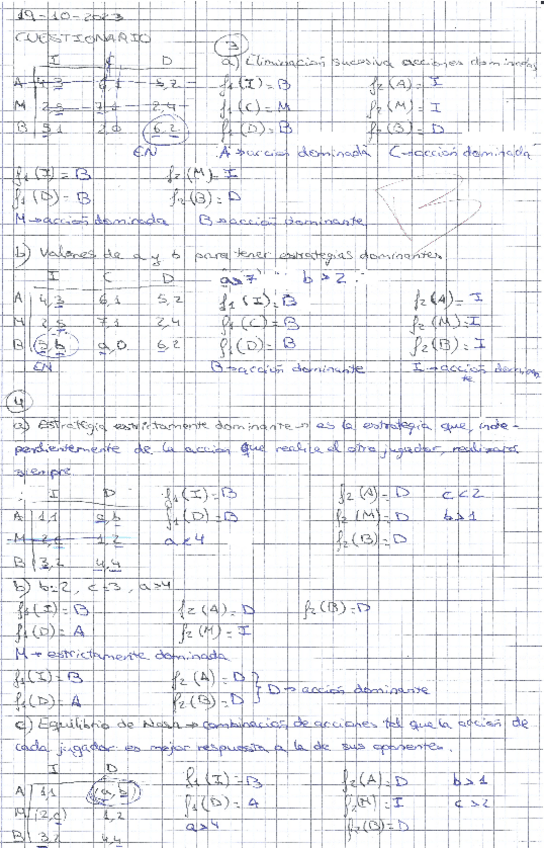 19-10-2023
CUESTIONARIO
3
I C D
a) Eliminación sucesiva acciones dominadas
A 4,3 6,1 5,2 f1(I)=B f2(A)=I
M 2,5 7,1 2,4 f1(C)=M f2(M)=I
B 5,1 2,0 6,2 f1(D)=B f2(B)=D
EN A→acción dominada C→acción dominada
f1(I)=B f2(M)=I
f1(D)=B f2(B)=D
M→acción dominada B→acción dominante
b) Valores de a y b para tener estrategias dominantes.
I C D a>7 b>2
A 4,3 6,1 5,2 f1(I)=B f2(A)=I
M 2,5 7,1 2,4 f1(C)=B f2(M)=I
B 5,b a,0 6,2 f1(D)=B f2(B)=I
EN B→acción dominante I→acción dominante
4
a) Estrategia estrictamente dominante→ es la estrategia que, inde-
pendientemente de la acción que realice el otro jugador, realizará
siempre.
I D f1(I)=B f2(A)=D c<2
A 1,1 a,b f1(D)=B f2(M)=D b>1
M 2,c 1,2 a<4 f2(B)=D
B 3,2 4,4
b) b=2, c=3, a>4
f1(I)=B f2(A)=D f2(B)=D
f1(D)=A f2(M)=I
M→estrictamente dominada
f1(I)=B f2(A)=D
f1(D)=A f2(B)=D } D→acción dominante
c) Equilibrio de Nash→combinación de acciones tal que la acción de
cada jugador es mejor respuesta a la de sus oponentes.
I D f1(I)=B f2(A)=D b>1
A 1,1 (a,b) f1(D)=A f2(M)=I c>2
M (2,c) 1,2 a>4 f2(B)=D
B 3,2 4,4